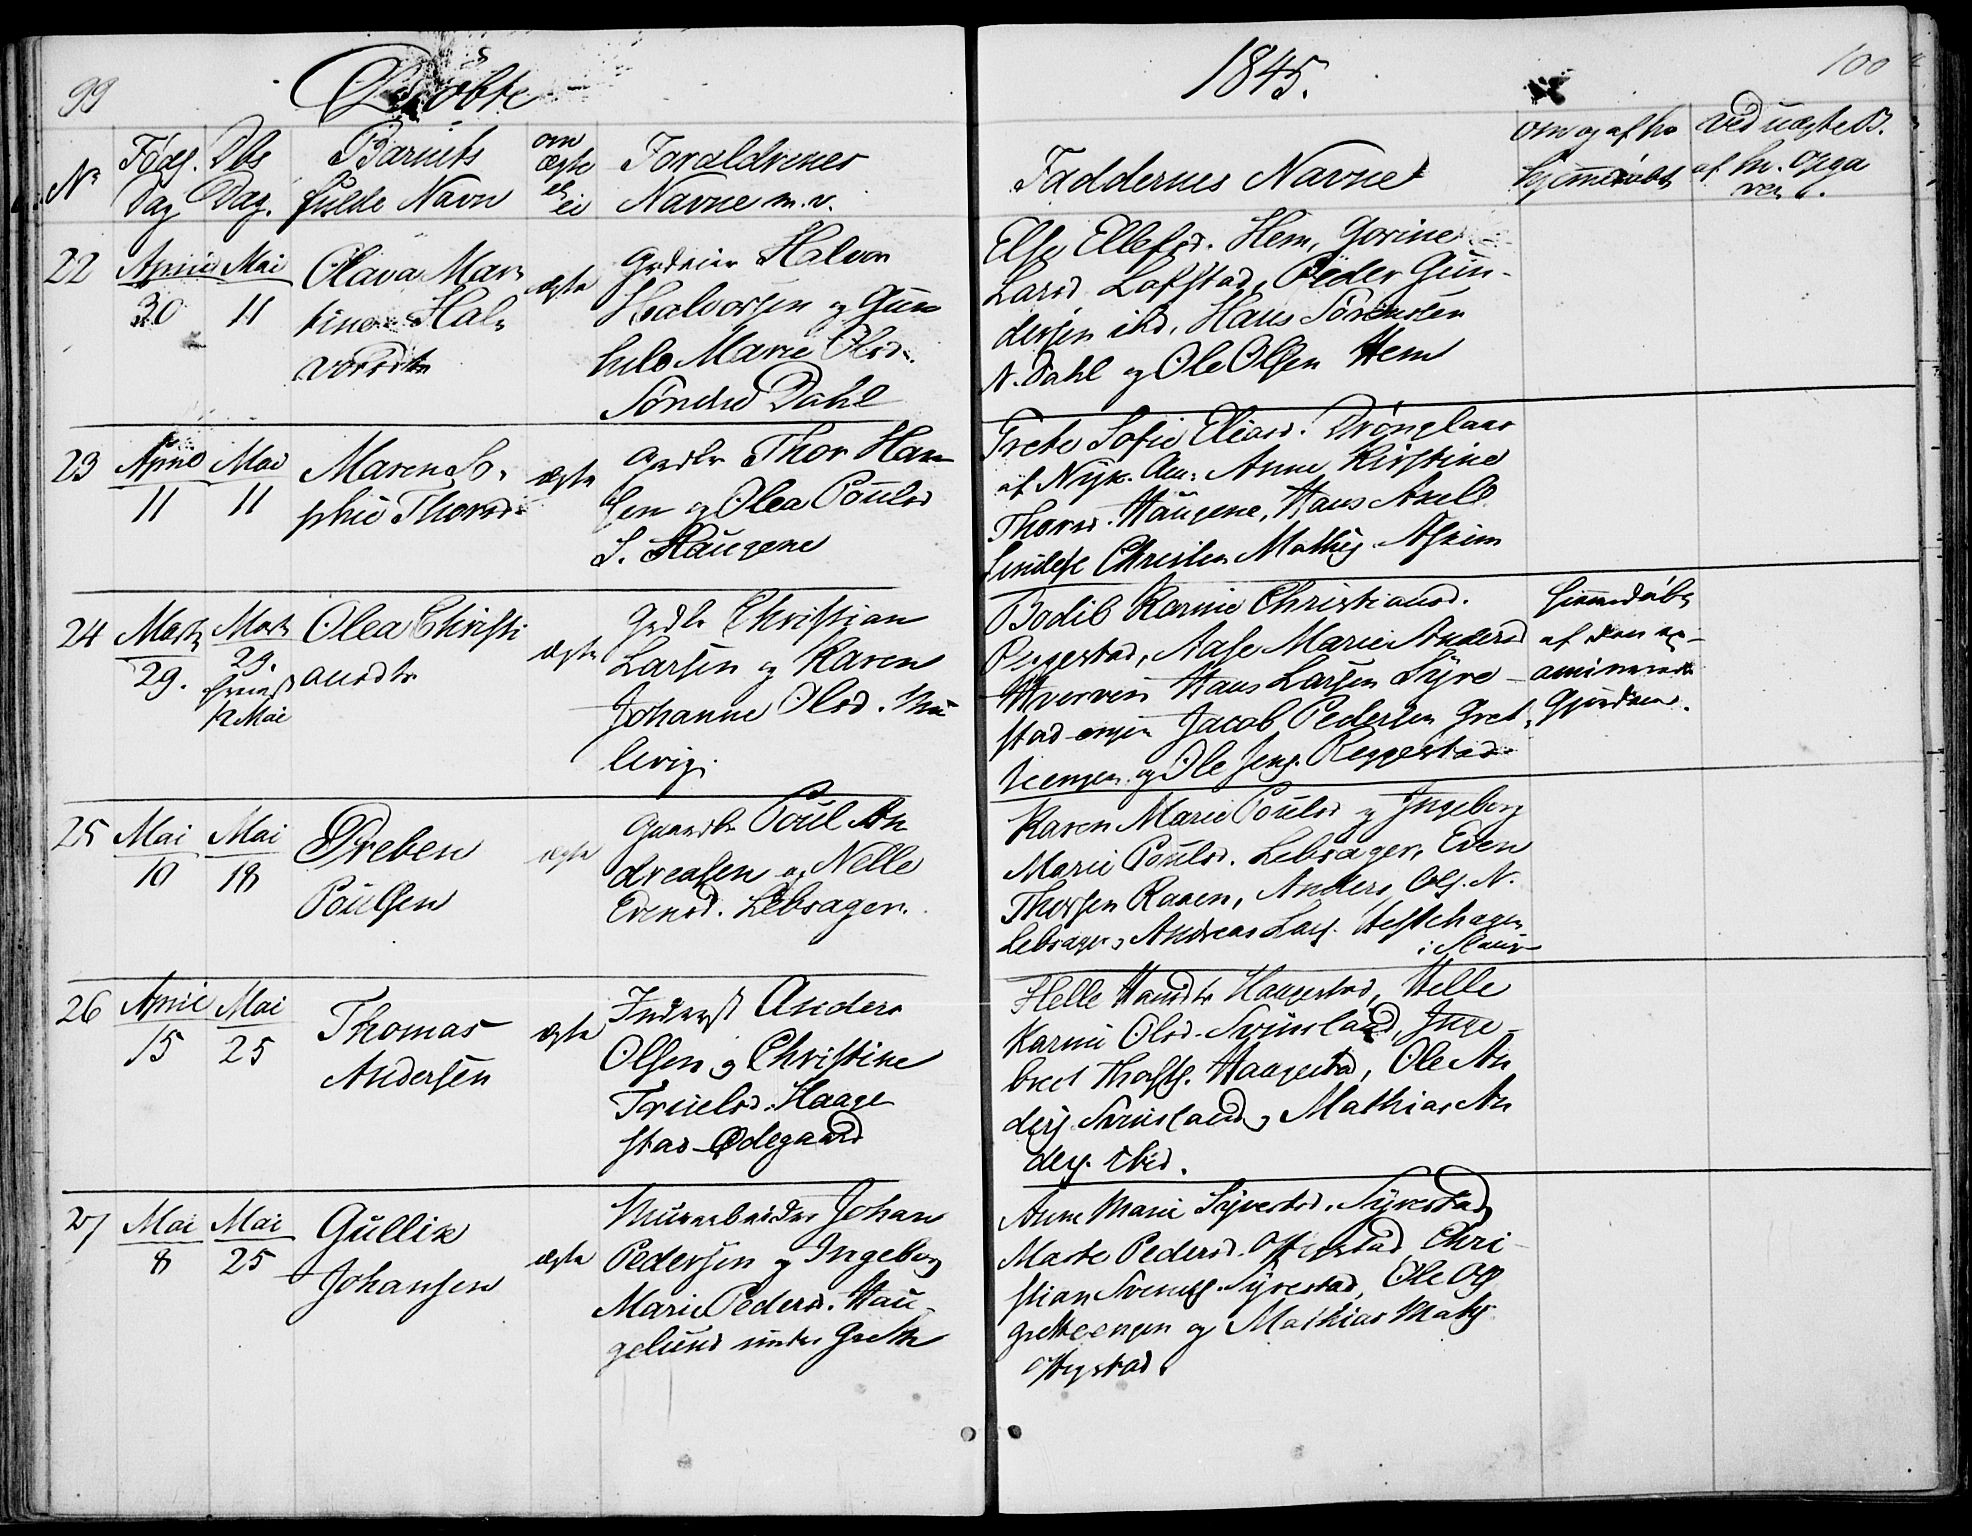 99
Døbte
1845.
100
No Føds. Dag Dbs Dag. Barnets fulde Navn om ægte el. ei Forældrenes Navne m.v.
Faddernes Navne
om og af hv. hjemmedøbt
Ved uægte B. af hv. Opga ven
22 April 30 Mai 11
Olava Mar
tine Hal
vorsdtr
ægte
Grdeier Halvor
Halvorsen og Gun
hild Marie Olsd.
Søndre Dahl
Else Ellefsd. Hem, Gorine
Larsd. Lofstad, Peder Gun-
dersen ibd, Hans Sørensen
N. Dahl og Ole Olsen Hem
23 April 11 Mai 11
Maren So-
phie Thorsd.
ægte
Grdbr Thor Han
sen og Olea Poulsd
S. Haugene
Grete Sofie Eliasd.
af Nyk. Anne Kirstine
Thorsd. Haugene, Hans Axel
Christen Mathis. Askim
24 Marts 29. Marts 29. 12 Mai
Olea Christi
ansdtr
ægte
Grdbr Christian
Larsen og Karen
Johanne Olsd.
Bodil Karine Christiansd.
Reggestad, Aase Marie Andersd
Hvarven Hans Larsen Syre-
stad-engen Jacob Pedersen Gret
teengen og Ole Jens. Reggestad
hjemmedøbt
af den ex-
aminerede
Gjordem.
25 Mai 10 Mai 18
Preben
Poulsen
ægte
Gaardbr Poul An
dreasen og Nelle
Evensd. Lebsager.
Karen Marie Poulsd og Ingeborg
Marie Poulsd. Lebsager, Even
Thorsen Raaen, Anders Ols. N.
Lebsager, Andreas Lars. Hesthagen
26 April 15 Mai 25
Thomas
Andersen
ægte
Inderst Anders
Olsen og Christine
Truelsd. Haage
stad-Ødegaard
Helle Hansdtr Haagestad, Helle
Karine Olsd. Svinsland, Inge-
bret Thorsts. Haagestad, Ole An
ders. Svinsland, Mathias An
ders. ibid.
27 Mai 8 Mai 25
Gullik
Johansen
ægte
Muurarbeider Johan
Pedersen og Ingeborg
Marie Pedersd. Hau-
gelund under Grette
Anne Marie Syvertsd. Syrestad,
Marte Pedersd. Chri-
stian Svends. Syrestad, Ole Ols
Gretteengen og Mathias Maths.